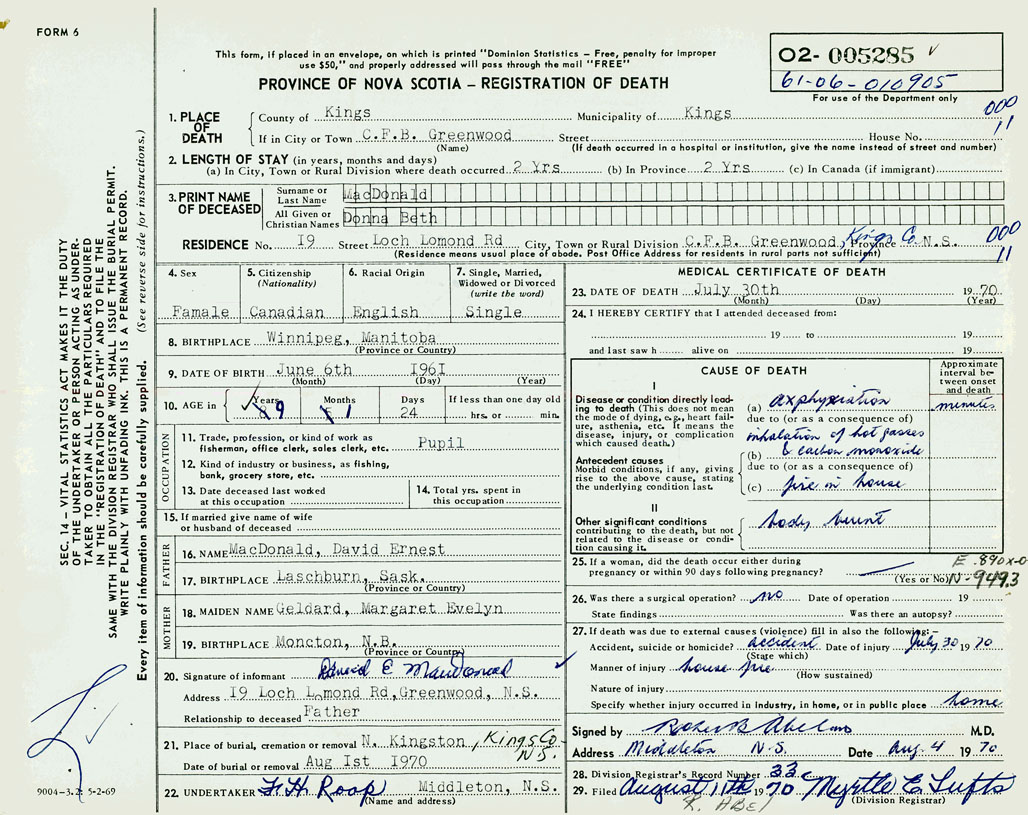 FORM 6
This form, if placed in an envelope, on which is printed "Dominion Statistics – Free, penalty for improper
use $50," and properly addressed will pass through the mail "FREE"
PROVINCE OF NOVA SCOTIA – REGISTRATION OF DEATH
02- 005285
61-06-010905
For use of the Department only
000
11
1. PLACE OF DEATH
County of Kings Municipality of Kings
If in City or Town C.F.B. Greenwood Street House No.
(Name) (If death occurred in a hospital or institution, give the name instead of street and number)
2. LENGTH OF STAY (in years, months and days)
(a) In City, Town or Rural Division where death occurred 2 Yrs (b) In Province 2 Yrs (c) In Canada (if immigrant)
3. PRINT NAME OF DECEASED
Surname or Last Name MacDonald
All Given or Christian Names Donna Beth
RESIDENCE No. I9 Street Loch Lomond Rd City, Town or Rural Division C.F.B. Greenwood, Kings Co. Province N.S. 000
(Residence means usual place of abode. Post Office Address for residents in rural parts not sufficient) 11
4. Sex
Famale
5. Citizenship
(Nationality)
Canadian
6. Racial Origin
English
7. Single, Married,
Widowed or Divorced
(write the word)
Single
8. BIRTHPLACE Winnipeg, Manitoba
(Province or Country)
9. DATE OF BIRTH June 6th I96I
(Month) (Day) (Year)
10. AGE in
Years
9
Months
1
Days
24
If less than one day old
hrs. or min.
OCCUPATION
11. Trade, profession, or kind of work as
fisherman, office clerk, sales clerk, etc. Pupil
12. Kind of industry or business, as fishing,
bank, grocery store, etc.
13. Date deceased last worked
at this occupation
14. Total yrs. spent in
this occupation
15. If married give name of wife
or husband of deceased
FATHER
16. NAME MacDonald, David Ernest
17. BIRTHPLACE Laschburn, Sask.
(Province or Country)
MOTHER
18. MAIDEN NAME Geldard, Margaret Evelyn
19. BIRTHPLACE Moncton, N.B.
(Province or Country)
20. Signature of informant David E MacDonald
Address I9 Loch Lomond Rd,Greenwood, N.S.
Relationship to deceased Father
21. Place of burial, cremation or removal N. Kingston, Kings Co.
N.S.
Date of burial or removal Aug 1st 1970
22. UNDERTAKER F.H. Roop Middleton, N.S.
(Name and address)
MEDICAL CERTIFICATE OF DEATH
23. DATE OF DEATH July 30th 1970
(Month) (Day) (Year)
24. I HEREBY CERTIFY that I attended deceased from:
19 to 19
and last saw h alive on 19
CAUSE OF DEATH
Approximate
interval be-
tween onset
and death
I
Disease or condition directly lead-
ing to death (This does not mean
the mode of dying, e.g., heart fail-
ure, asthenia, etc. It means the
disease, injury, or complication
which caused death.)
(a) axphyxiation minutes
due to (or as a consequence of)
inhalation of hot gasses
(b) & carbon monoxide
Antecedent causes
Morbid conditions, if any, giving
rise to the above cause, stating
the underlying condition last.
due to (or as a consequence of)
(c) fire in house
II
Other significant conditions
contributing to the death, but not
related to the disease or condi-
tion causing it.
body burnt
25. If a woman, did the death occur either during
pregnancy or within 90 days following pregnancy?
(Yes or No)
E.890X-0
N-949.3
26. Was there a surgical operation? no Date of operation 19
State findings Was there an autopsy?
27. If death was due to external causes (violence) fill in also the following:–
Accident, suicide or homicide? accident Date of injury July 30 1970
(State which)
Manner of injury house fire
(How sustained)
Nature of injury
Specify whether injury occurred in industry, in home, or in public place home
Signed by M.D.
Address Middleton N.S. Date Aug. 4 1970
28. Division Registrar's Record Number 33
29. Filed August 11th 1970 Myrtle E Tufts
(Division Registrar)
R. ABEL
SEC. 14 – VITAL STATISTICS ACT MAKES IT THE DUTY
OF THE UNDERTAKER OR PERSON ACTING AS UNDER-
TAKER TO OBTAIN ALL THE PARTICULARS REQUIRED
IN THE "REGISTRATION OF DEATH" AND TO FILE THE
SAME WITH THE DIVISION REGISTRAR WHO SHALL ISSUE THE BURIAL PERMIT.
WRITE PLAINLY WITH UNFADING INK. THIS IS A PERMANENT RECORD.
Every item of information should be carefully supplied. (See reverse side for instructions.)
9004-3.2: 5-2-69